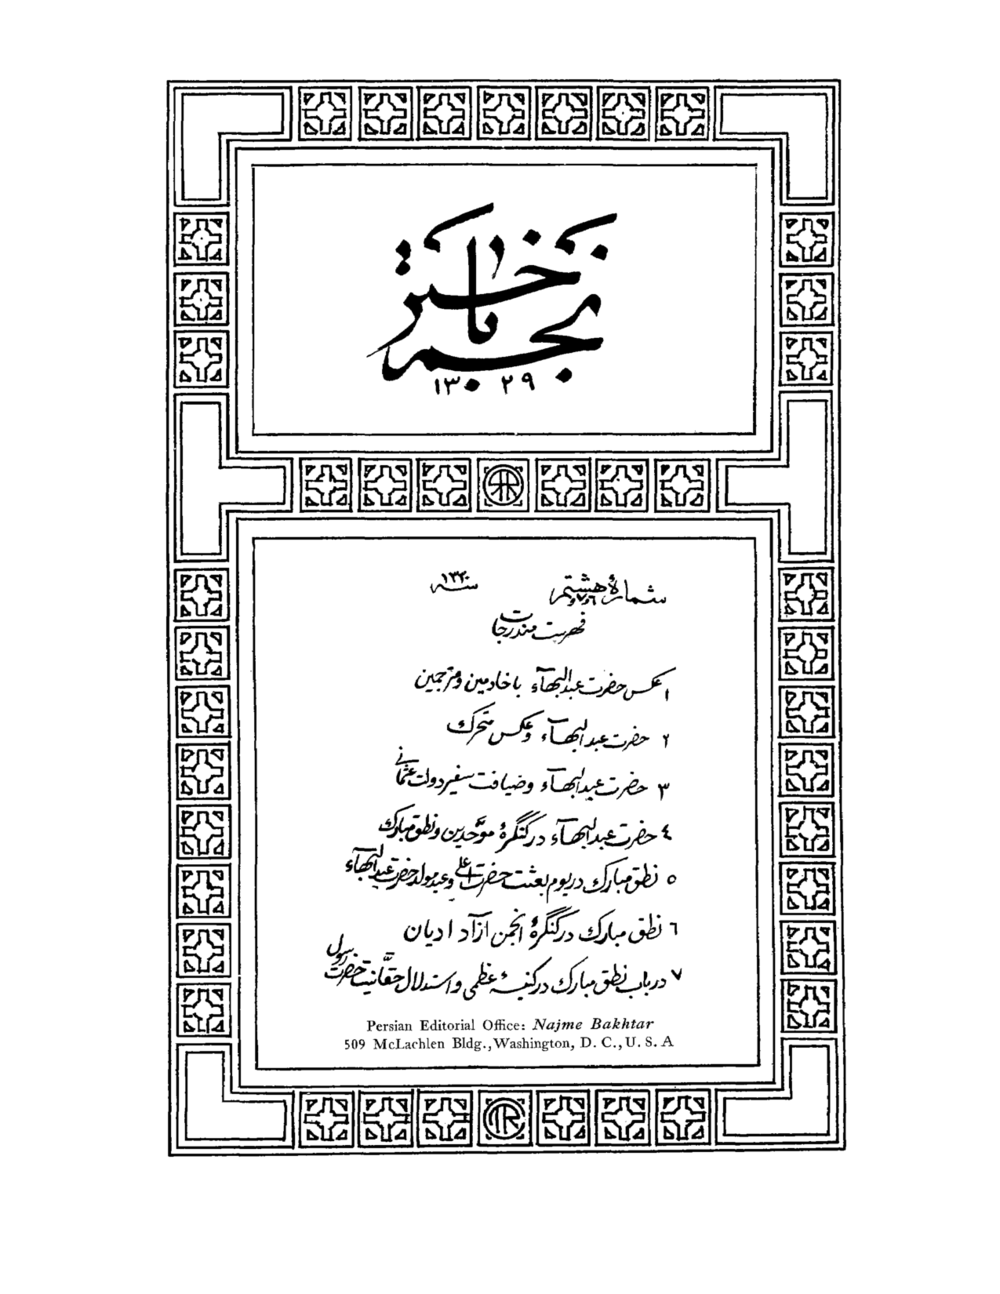 نجم باختر
۱۳۲۹
شمارهٔ هشتم سنه ۱۳۴۰
فهرست مندرجات
۱ عکس حضرت عبدالبهآء با خادمین و مترجمین
۲ حضرت عبدالبهآء و عکس متحرک
۳ حضرت عبدالبهآء وضیافت سفیر دولت عثمانی
٤ حضرت عبدالبهآء در کنگرهٔ موحّدین و نطق مبارک
٥ نطق مبارک در یوم بعثت حضرت اعلی وعید مولد حضرت عبدالبهآء
٦ نطق مبارک در کنگرهٔ انجمن آزاد ادیان
۷ در باب نطق مبارک در کنیسهٔ عظمی و استدلال حقّانیت حضرت رسول
Persian Editorial Office: Najme Bakhtar
509 McLachlen Bldg., Washington, D. C., U. S. A